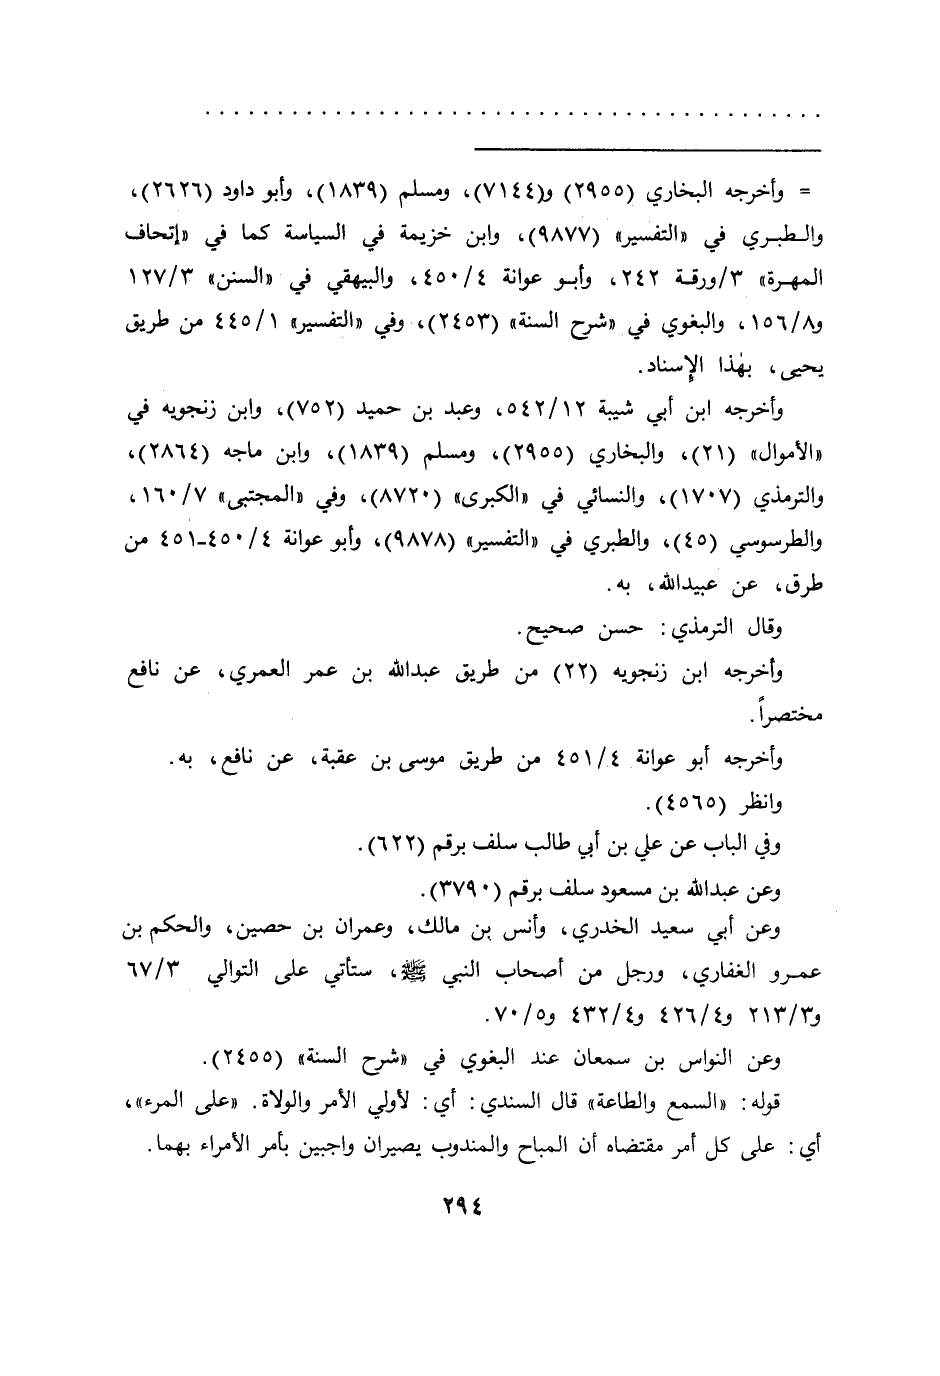 = وأخرجه البخاري (٢٩٥٥) و(٧١٤٤)، ومسلم (١٨٣٩)، وأبو داود (٢٦٢٦)،
والطبري في «التفسير» (٩٨٧٧)، وابن خزيمة في السياسة كما في «إتحاف
المهرة» ٣/ورقة ٢٤٢، وأبو عوانة ٤٥٠/٤، والبيهقي في «السنن» ١٢٧/٣
و١٥٦/٨، والبغوي في «شرح السنة» (٢٤٥٣)، وفي «التفسير» ٤٤٥/١ من طريق
يحيى، بهٰذا الإِسناد.
وأخرجه ابن أبي شيبة ٥٤٢/١٢، وعبد بن حميد (٧٥٢)، وابن زنجويه في
«الأموال» (٢١)، والبخاري (٢٩٥٥)، ومسلم (١٨٣٩)، وابن ماجه (٢٨٦٤)،
والترمذي (١٧٠٧)، والنسائي في «الكبرى» (٨٧٢٠)، وفي «المجتبى» ١٦٠/٧،
والطرسوسي (٤٥)، والطبري في «التفسير» (٩٨٧٨)، وأبو عوانة ٤٥٠/٤-٤٥١ من
طرق، عن عبيدالله، به.
وقال الترمذي: حسن صحيح.
وأخرجه ابن زنجويه (٢٢) من طريق عبدالله بن عمر العمري، عن نافع
مختصراً.
وأخرجه أبو عوانة ٤٥١/٤ من طريق موسى بن عقبة، عن نافع، به.
وانظر (٤٥٦٥).
وفي الباب عن علي بن أبي طالب سلف برقم (٦٢٢).
وعن عبدالله بن مسعود سلف برقم (٣٧٩٠).
وعن أبي سعيد الخدري، وأنس بن مالك، وعمران بن حصين، والحكم بن
عمرو الغفاري، ورجل من أصحاب النبي ﷺ، ستأتي على التوالي ٦٧/٣
و٢١٣/٣ و٤٢٦/٤ و٤٣٢/٤ و٧٠/٥.
وعن النواس بن سمعان عند البغوي في «شرح السنة» (٢٤٥٥).
قوله: «السمع والطاعة» قال السندي: أي: لأولي الأمر والولاة. «على المرء»،
أي: على كل أمر مقتضاه أن المباح والمندوب يصيران واجبين بأمر الأمراء بهما.
٢٩٤